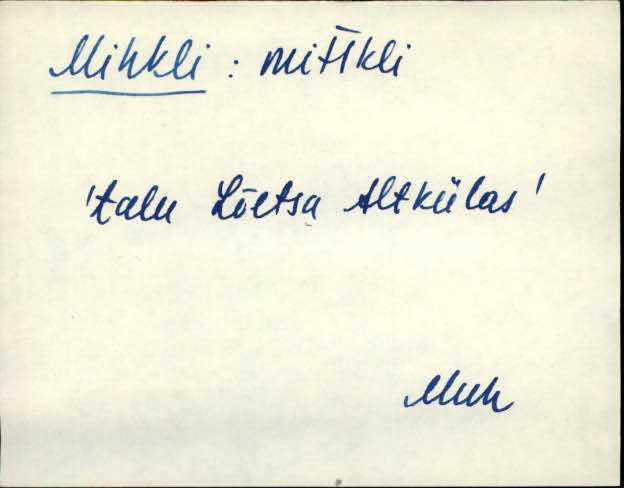 Mihkli : miľľkli
'talu Lõetsa Altkülas'
Muh